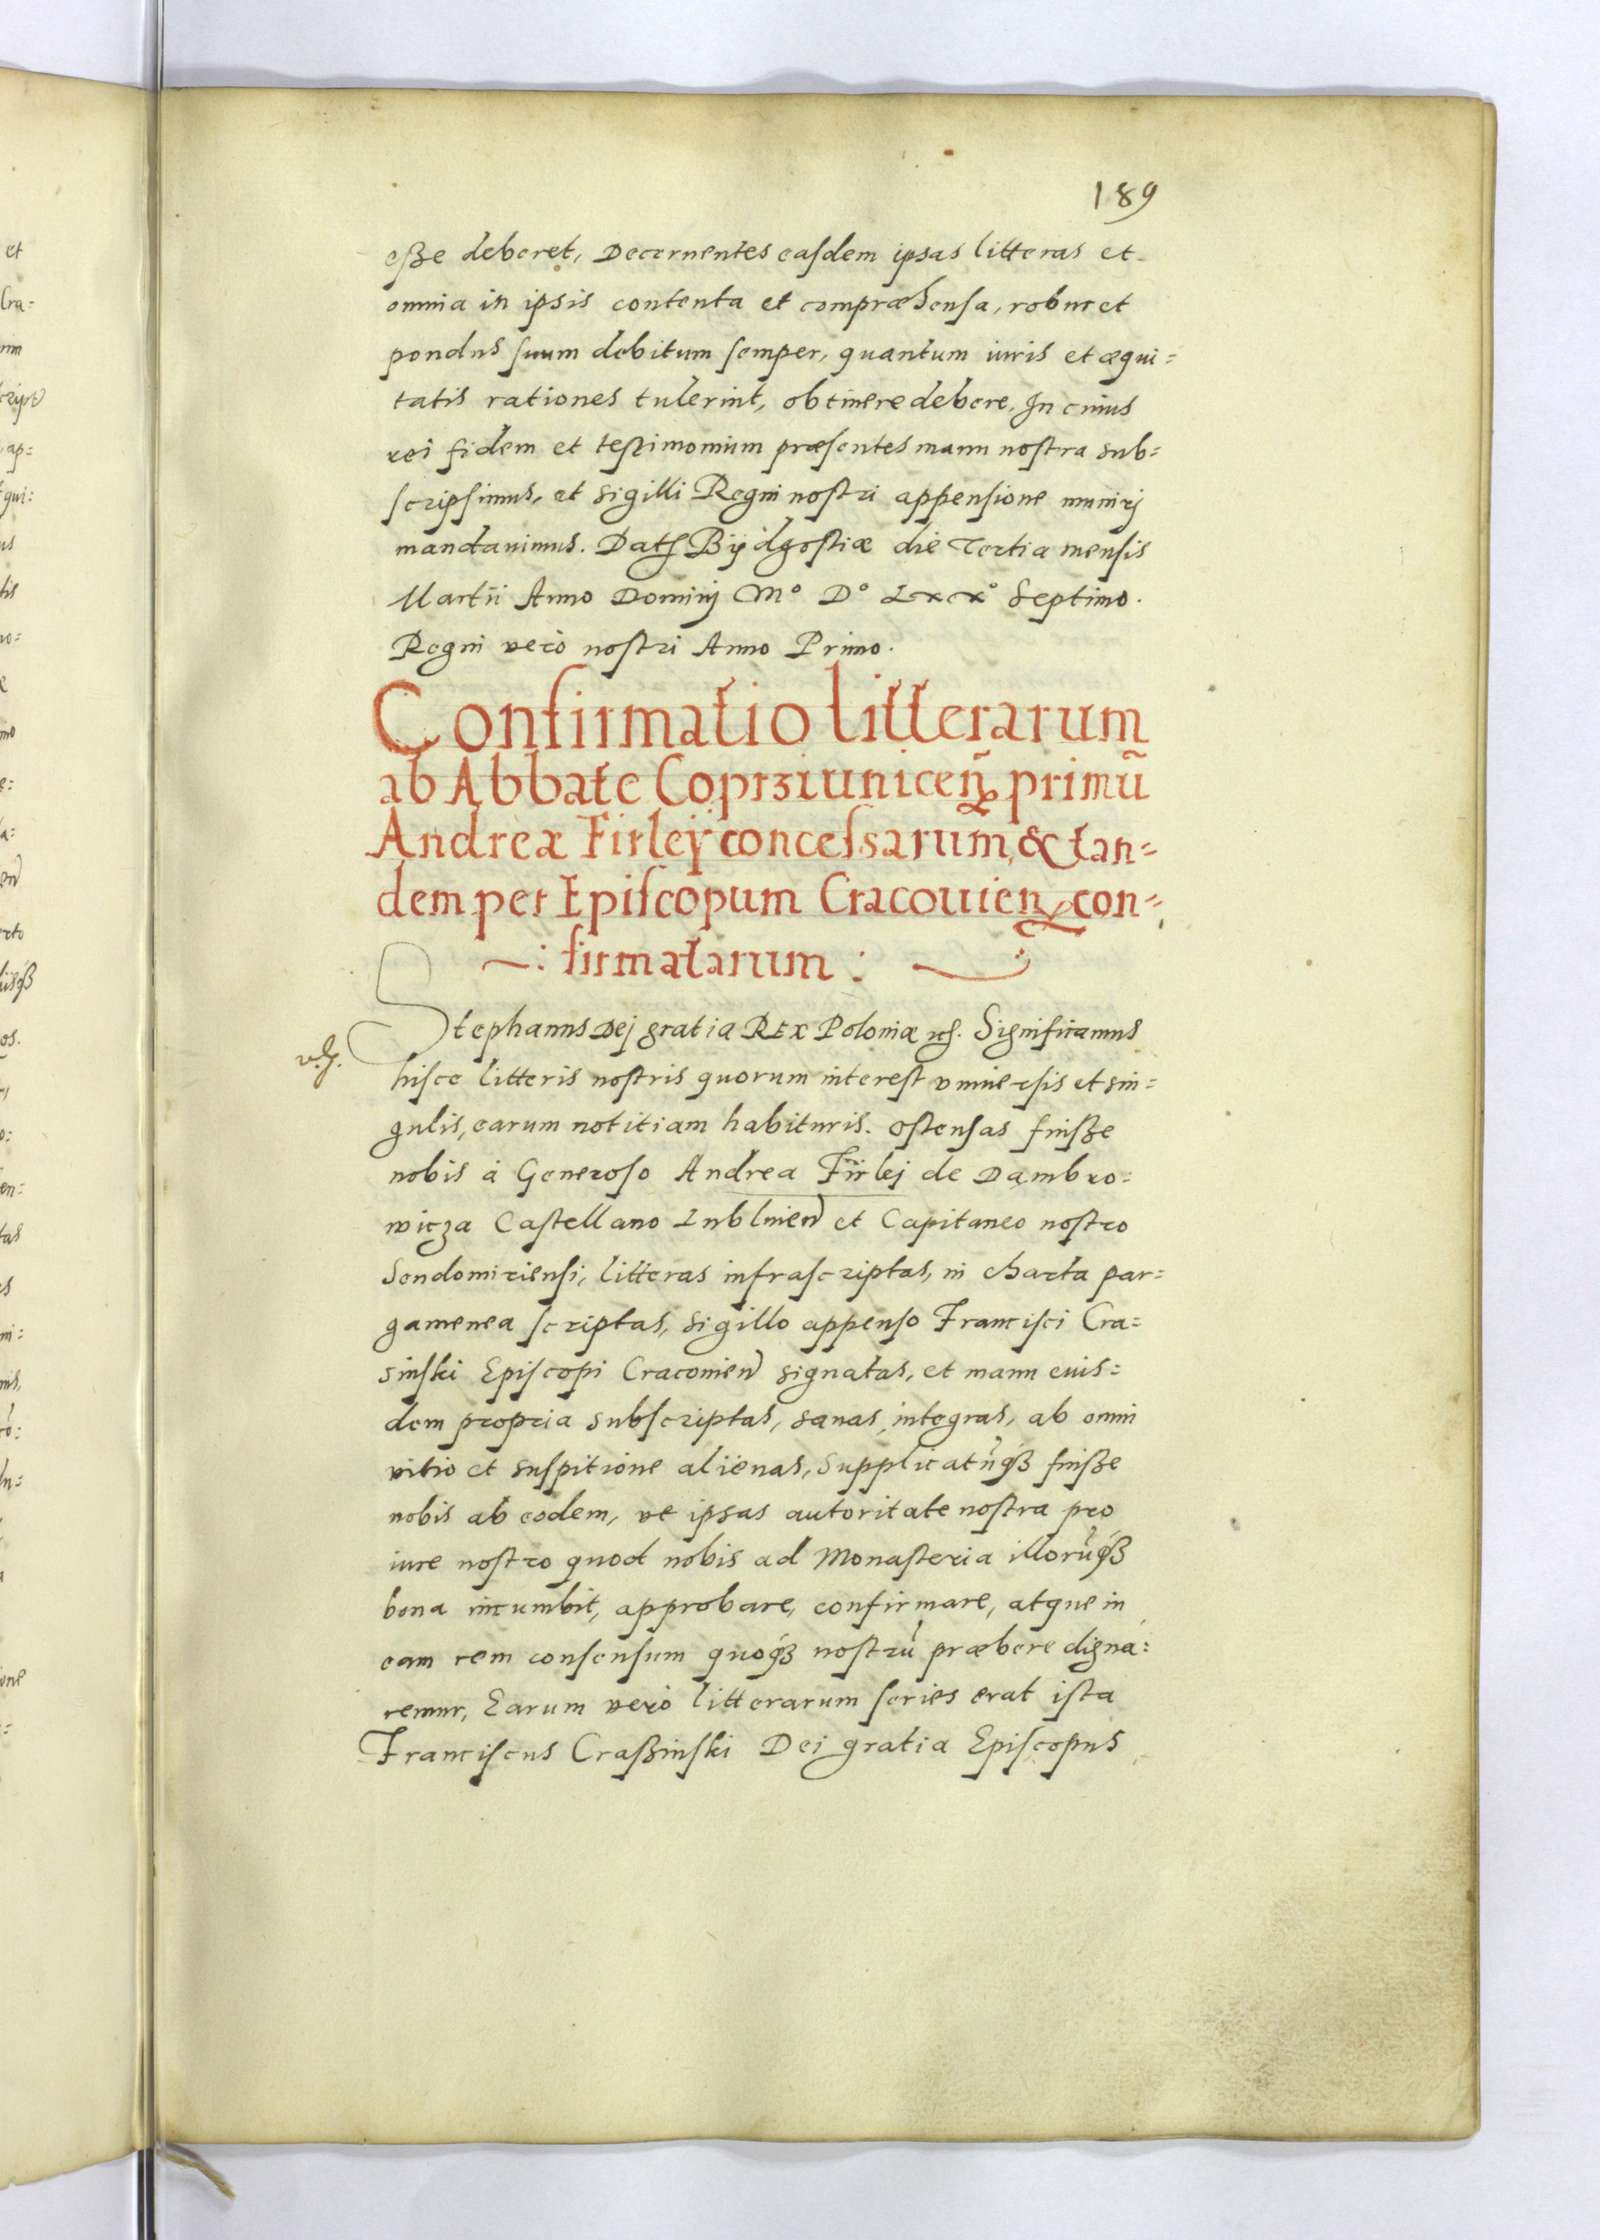 189
eſʒe deberet, Decernentes easdem ipsas litteras et
omnia in ipsis contenta et compræhensa, robur et
pondus suum debitum semper, quantum iuris et æqui=
tatis rationes tulerint, obtinere debere. In cuius
rei fidem et testimonium præsentes manu nostra sub=
scripsimus, et sigilli Regni nostri appensione muniri
mandavimus. Dat Bydgostiæ die Tertia mensis
Martii Anno Domini Mº Dº Lxxº Septimo.
Regni verò nostri Anno Primo.
Confirmatio litterarum
ab Abbate Coprziunicen primū
Andreæ Firleÿ concessarum, & tan=
dem per Episcopum Cracouien con=
firmatarum
Stephanus Dej gratia Rex Poloniæ etc. Significamus
hisce litteris nostris quorum interest vniuersis et sin=
gulis, earum notitiam habituris. Ostensas fuiſʒe
nobis à Generoso Andrea Firlej de Dambro=
wicza Castellano Lublinen et Capitaneo nostro
Sendomiriensi, litteras infrascriptas, in charta par=
gamenea scriptas, sigillo appenso Francisci Cra=
sinski Episcopi Cracouien signatas, et manu euis=
dem propria subscriptas, sanas, integras, ab omni
vitio et suspitione alienas, Supplicatūqʒ fuiſʒe
nobis ab eodem, vt ipsas autoritate nostra pro
iure nostro quod nobis ad Monasteria illorūqʒ
bona incumbit, approbare, confirmare, atque in
eam rem consensum quoqʒ nostrū præbere digna=
remur, Earum verò litterarum series erat ista
Franciscus Craßinski Dei gratia Episcopus